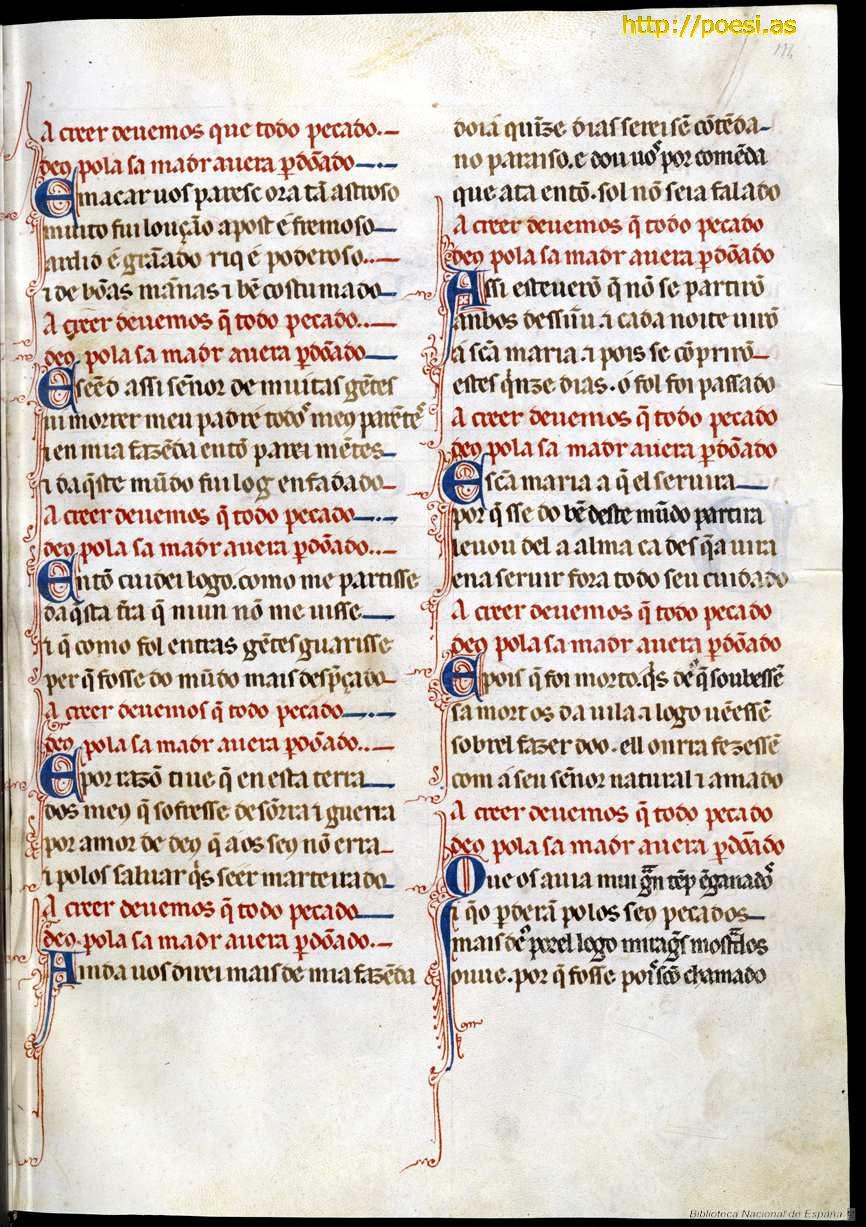 http://poesi.as
114
A creer deuemos que todo pecado.
deꝯ pola sa madr auera ꝑdõado
E macar uos paresc ora tã astroso
muito fui loução apost é fremoso
ardid é grãado riq é poderoso..
⁊ de bõas mãnas ⁊ bẽ costumado
A creer deuemos q̃ todo pecado..
deꝯ pola sa madr auera ꝑdõado
E seẽd assi sẽnor de muitas gẽtes
ui morrer meu padre todoˢ meꝯ parẽteˢ
⁊ en mia fazẽda entõ parei mẽtes
⁊ daq̃ste mũdo fui log enfadado
A creer deuemos q̃ todo pecado
deꝯ pola sa madr auera ꝑdõado..
Entõ cuidei logo. como me partisse
daq̃sta t̃ra q̃ niun nõ me uisse
⁊ q̃ como fol entras gẽtes guarisse
per q̃ fosse do mũdo mais desp̃çado
A creer deuemos q̃ todo pecado
deꝯ pola sa madr auera ꝑdõado..
E por razõ tiue q̃ en esta terra
dos meꝯ q̃ sofresse desõrra ⁊ guerra
por amor de deꝯ q̃ aos seꝯ nõ erra
⁊ polos saluar qⁱs seer marteirado
A creer deuemos q̃ todo pecado
deꝯ. pola sa madr auera ꝑdõado.
Ainda uos direi mais de mia fazẽda
doiá quĩze dias serei sẽ cõtẽda
no paraiso. e dou uoˢ por comẽda
que ata entõ. sol nõ seia falado
A creer deuemos q̃ todo pecado
deꝯ pola sa madr auera ꝑdõado
Assi esteuerõ q̃ nõ se partirõ
anbos dessũu. ⁊ cada noite uirõ
á scã maria. ⁊ pois se cõprirõ
estes qⁱnze dias. o fol foi passado
A creer deuemos q̃ todo pecado
deꝯ pola sa madr auera ꝑdõado
E scã maria a q̃ el seruira
por q̃ sse do bẽ deste mũdo partira
leuou del a alma ca des q̃ a uira
en a seruir fora todo seu cuidado
A creer deuemos q̃ todo pecado
deꝯ pola sa madr auera ꝑdõado
E pois q̃ foi morto. qⁱs deˢ q̃ soubessẽ
sa mort os da uila. ⁊ logo uẽessẽ
sobrel fazer doo. ell onrra fezessẽ
com á seu sẽnor natural ⁊ amado
A creer deuemos q̃ todo pecado
deꝯ pola sa madr auera ꝑdõado
Que os auia mui grã tẽp ẽganadoˢ
⁊ q̃o ꝑderã polos seꝯ pecados
mais deˢ porel logo miragˢ mostͣ los
ouue. por q̃ fosse poiˢ scõ chamado
Biblioteca Nacional de España